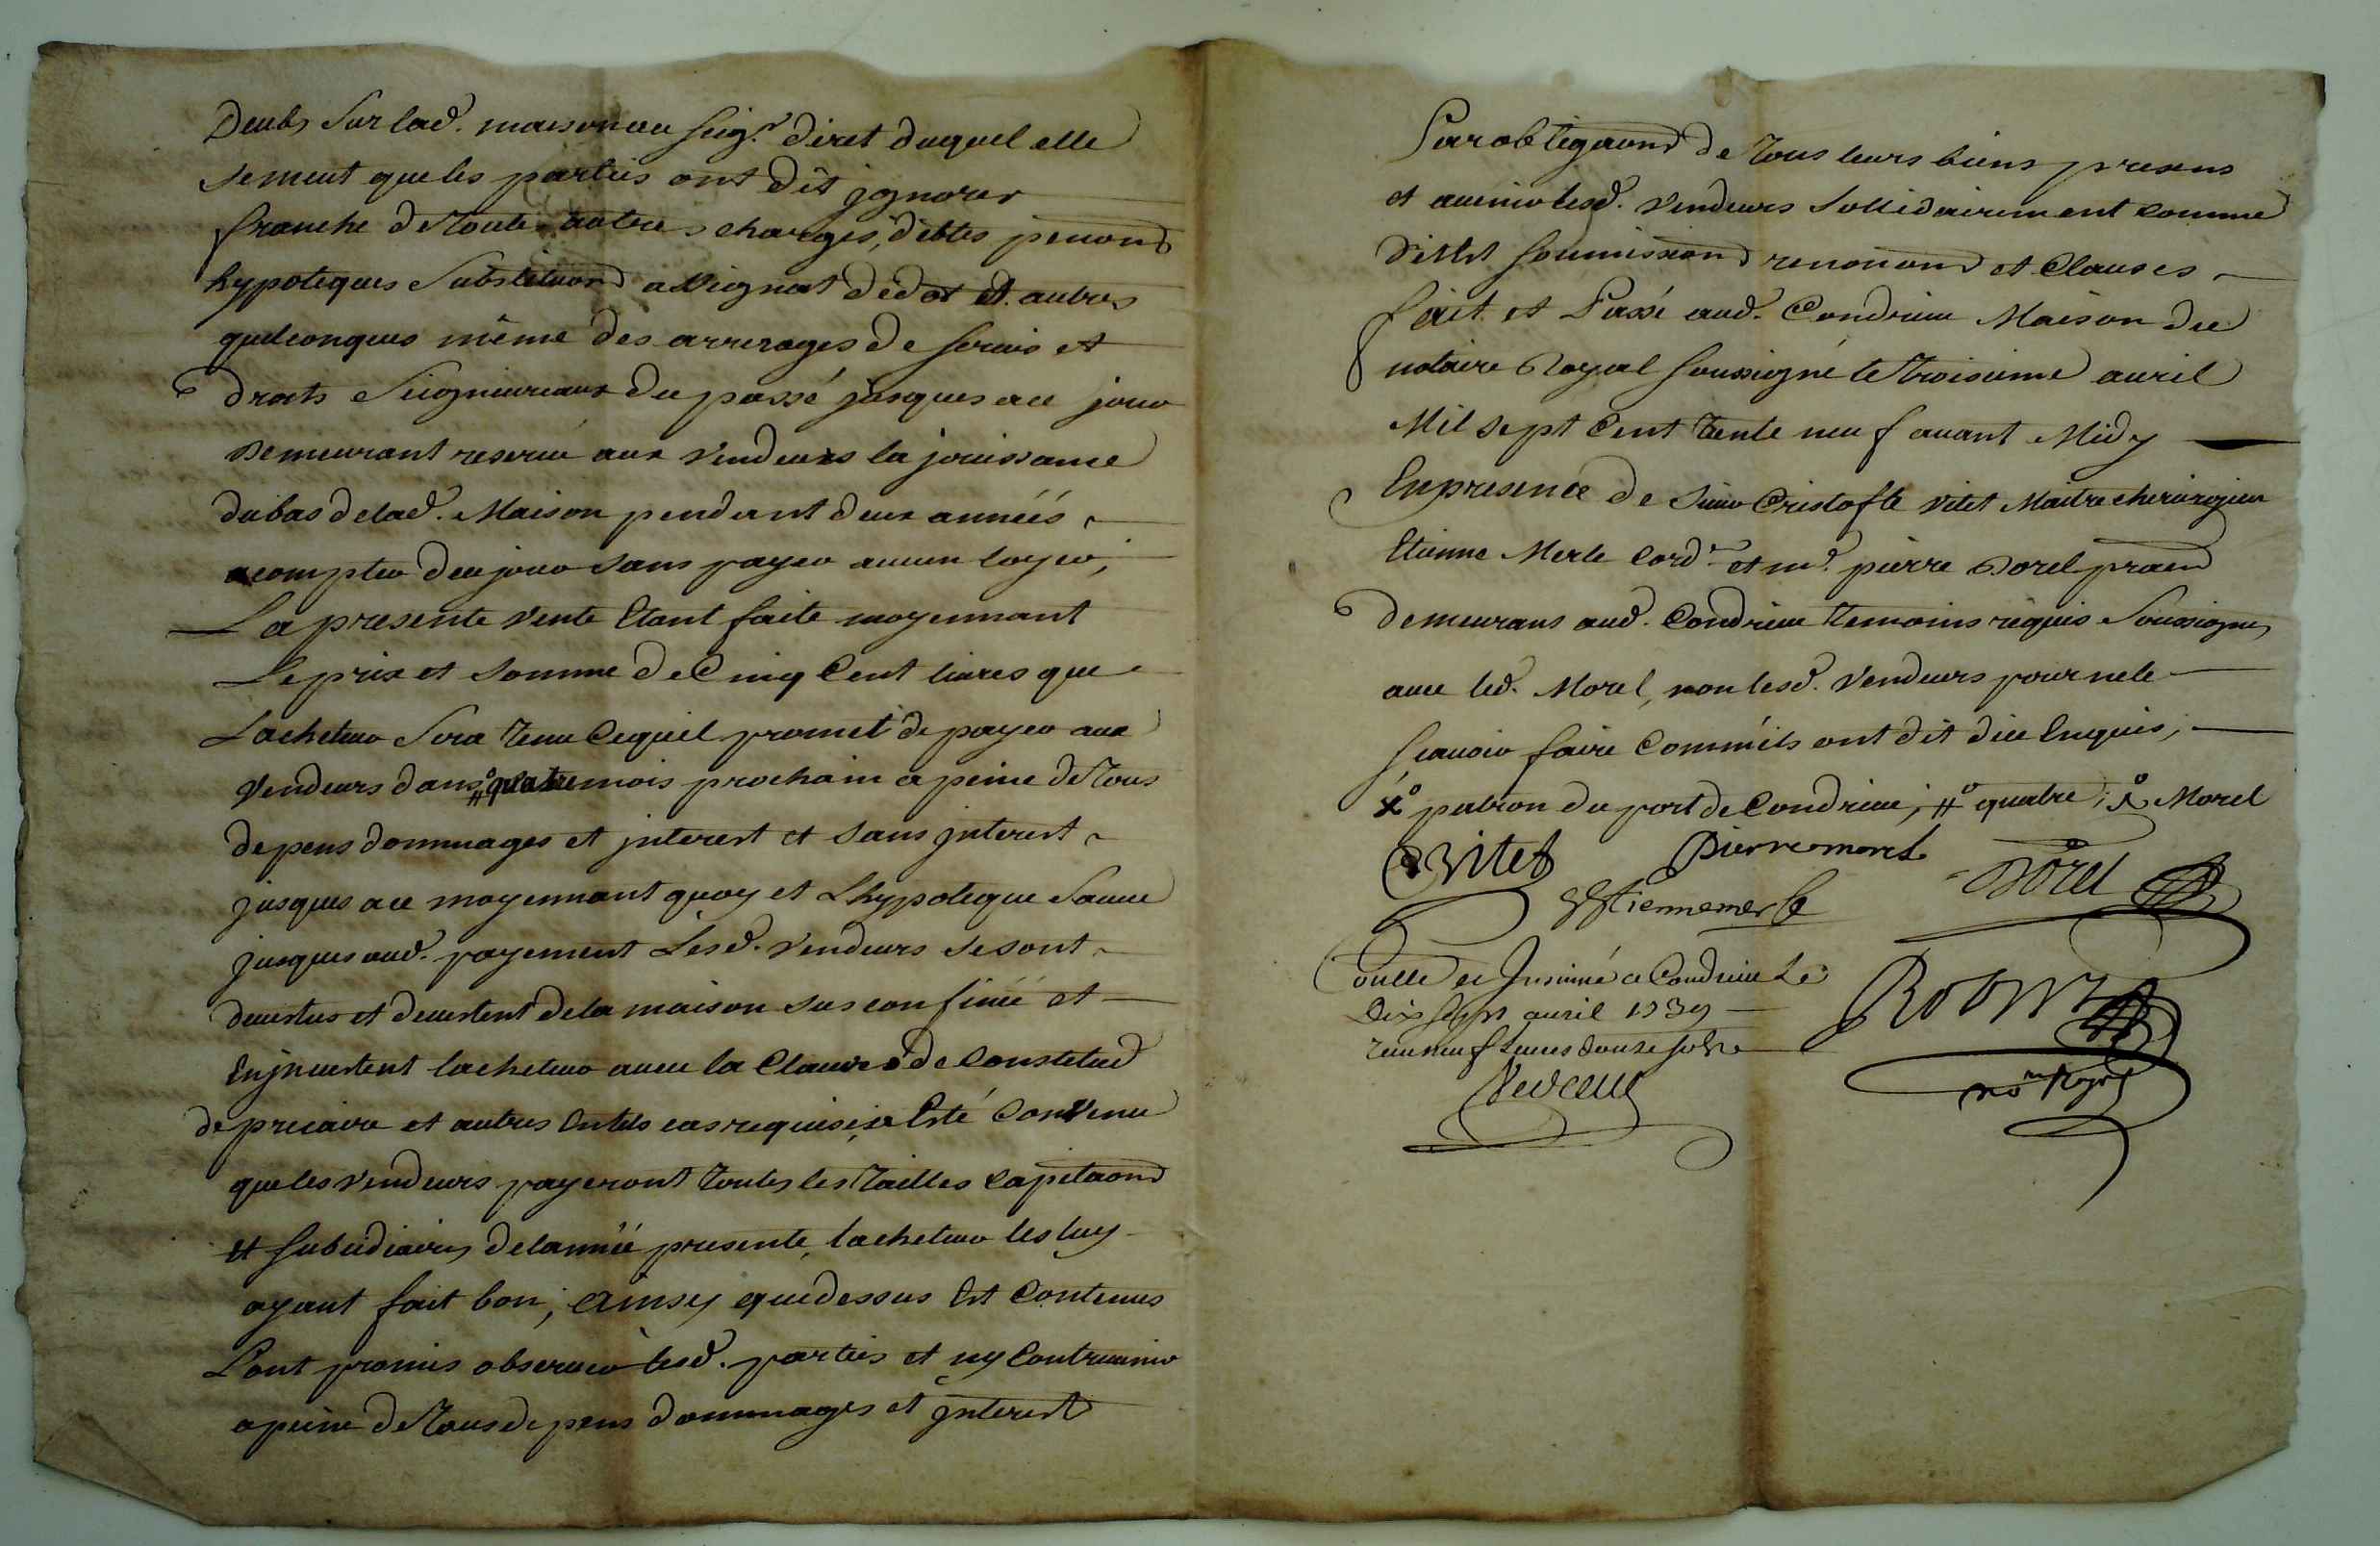 Deubs sur lad. maison au seig.r diret duquel elle
se meut que les parties ont dit jgnorer
franche de toutes autres charges, debtes penons
hypoteques substituons assignat de dot et autres
quelconques même des arrerages de servis et
droits seigneuriaux du passé jusques a ce jour
Demeurant reservé aux vendeurs la jouissance
du bas de lad. Maison pendant deux années
a compter de ce jour sans payer aucun loyer,
La presente vente Etant faite moyennant
Le prix et somme de Cinq Cent livres que
Lacheteur sera tenu Ce quil promet de payer aux
Vendeurs dans #o quatre mois prochain a peine de tous
depens dommages et jnterest et sans jnterest
jusques a ce moyennant quoy et Lhypoteque sauve
jusques aud. payement Lesd. vendeurs se sont
devestus et devestent de la maison sus confinée et
En jnvestent lacheteur avec la Clause de Constitud
de precaire et autres En tels cas requises, a Esté Convenu
que les vendeurs payeront toutes les tailles Capitaons
et subsidiaires de lannée presente, lacheteur les luy
ayant fait bon; Ainsy que dessus Est Contenus
L'ont promis observer lesd. parties et ny Contrevenir
a peine de tous depens dommages et jnterest
Par obligaons de tous leurs biens presens
et avenir lesd. vendeurs sollidairement comme
dit Est soumissions renonons et Clauses
fait et Passé aud. Condrieu Maison du
notaire Royal soussigné le troisieme avril
Mil sept Cent trente neuf avant Midy
En presence de sieur Cristofle vitet Maitre chirurgien
Etienne Merle Cord.r et m.e pierre Dorel praen
demeurans aud. Condrieu temoins requis soussignes
avec led. Morel, non lesd. Vendeurs pour ne le
scavoir faire Comm'ils ont dit de ce Enquis,
xo patron du port de Condrieu; #o quatre; Morel
Vitet
Pierre morel
Dorel
Estienne merle
Conllé et Insinué a Condrieu Le
Dix sept avril 1739
receu neuf Livres douze sols
Robin
no.re Royal